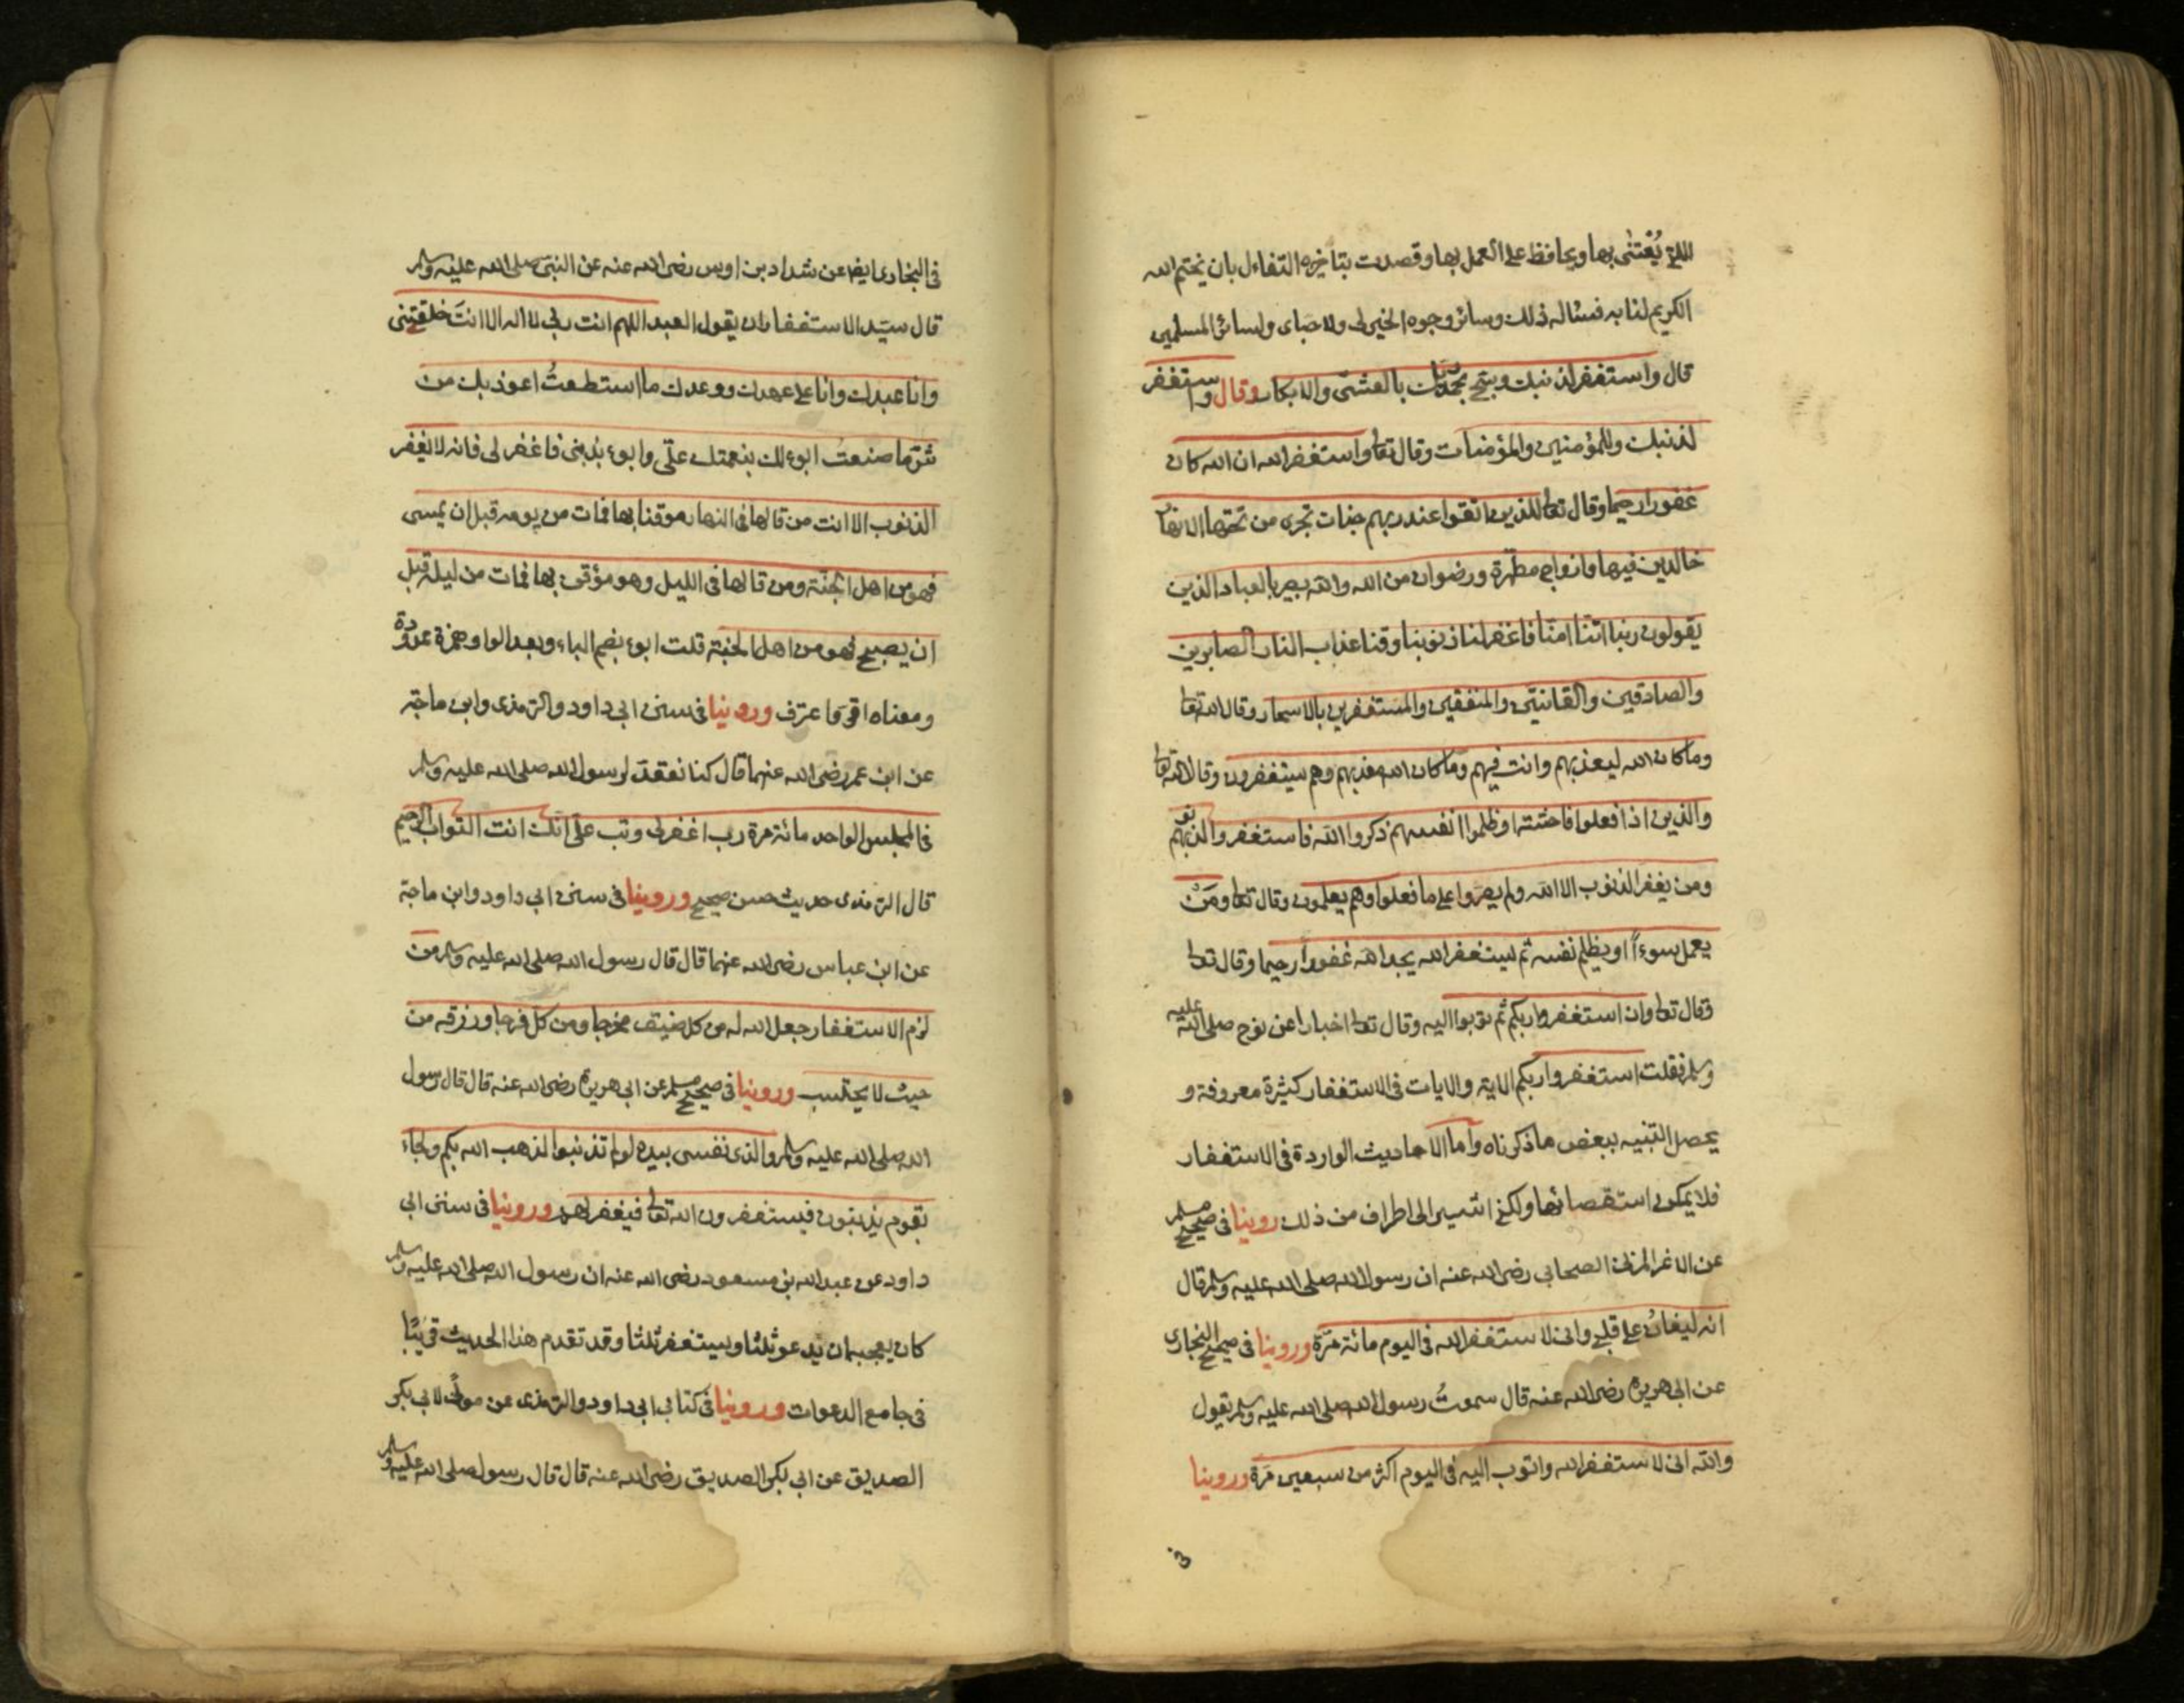 التي يُعْتنى بها ويحافظ على العمل بها وقصدت بتاخيره التفاءل بان يختم الله
الكريم لنا به فنسئاله ذلك وسائر وجوه الخير لى ولاحبابى ولسائر المسلمين
قال واستغفر لذنبك وسبح بحمد ربك بالعشىّ والابكار وقال واستغفر
لذنبك وللمؤمنين والمؤمنات وقال تعا واستغفر الله ان الله كان
غفورا رحيما وقال تعا للذين اتقوا عند ربهم جنات تجرى من تحتها الانهار
خالدين فيها وازواج مطهّرة ورضوان من الله والله بصير بالعباد الذين
يقولون ربنا اننا امنّا فاغفر لنا ذنوبنا وقنا عذاب النار الصابرين
والصادقين والقانتين والمنفقين والمستغفرين بالاسحار وقال الله تعا
وما كان الله ليعذبهم وانت فيهم وما كان الله معذبهم وهم يستغفرون وقال الله تعا
والذين اذا فعلوا فاحشة او ظلموا انفسهم ذكروا الله فاستغفروا لذنوبهم
ومن يغفر الذنوب الا الله ولم يصرّوا على ما فعلوا وهم يعلمون وقال تعا ومَنْ
يعمل سوءاً او يظلم نفسه ثم يستغفر الله يجد الله غفوراً رحيما وقال تعا
وقال تعا وان استغفروا ربكم ثم توبوا اليه وقال تعا اخبارا عن نوح صلى الله عليه
وسلم فقلت استغفروا ربكم الاية والايات فى الاستغفار كثيرة معروفة و
يحصل التنبيه ببعض ما ذكرناه واما الاحاديث الواردة فى الاستغفار
فلا يمكن استقصائها ولكنى اشير الى اطراف من ذلك روينا فى صحيح مسلم
عن الاغر المزنى الصحابى رضى الله عنه ان رسول الله صلى الله عليه وسلم قال
انه ليغانُ على قلبى وانى لاستغفر الله فى اليوم مائة مرّة وروينا فى صحيح البخارى
عن ابى هريرة رضى الله عنه قال سمعتُ رسول الله صلى الله عليه وسلم يقول
والله انى لاستغفر الله واتوب اليه فى اليوم اكثر من سبعين مرّة وروينا
فى
فى البخارى ايضا عن شداد بن اوس رضى الله عنه عن النبىّ صلى الله عليه وسلم
قال سيّد الاستغفار ان يقول العبد اللهم انت ربى لا اله الا انتَ خلقتنى
وانا عبدك وانا على عهدك ووعدك ما استطعتُ اعوذ بك من
شرّ ما صنعتُ ابوء لك بنعمتك علىّ وابوء بذنبى فاغفر لى فانه لا يغفر
الذنوب الا انت من قالها فى النهار موقنا بها فمات من يومه قبل ان يمسى
فهو من اهل الجنّة ومن قالها فى الليل وهو مؤقن بها فمات من ليله قبل
ان يصبح فهو من اهل الجنة قلت ابوء بضم الباء وبعد الواو همزة ممدودة
ومعناه اقرّ واعترف وروينا فى سنن ابى داود والترمذى وابن ماجة
عن ابن عمر رضى الله عنهما قال كنا نعدّ لرسول الله صلى الله عليه وسلم
فى المجلس الواحد مائة مرة رب اغفر لى وتب علىّ انك انت التواب الرحيم
قال الترمذى حديث حسن صحيح وروينا فى سنن ابى داود وابن ماجة
عن ابن عباس رضى الله عنهما قال قال رسول الله صلى الله عليه وسلم من
لزم الاستغفار جعل الله له من كل ضيق مخرجا ومن كل فرجا ورزقه من
حيث لا يحتسب وروينا فى صحيح مسلم عن ابى هريرة رضى الله عنه قال قال رسول
الله صلى الله عليه وسلم والذى نفسى بيده لو لم تذنبوا لذهب الله بكم ولجاء
بقوم يذنبون فيستغفرون الله تعا فيغفر لهم وروينا فى سنن ابى
داود عن عبدالله بن مسعود رضى الله عنه ان رسول الله صلى الله عليه وسلم
كان يعجبه ان يدعو ثلثا ويستغفر ثلثا وقد تقدم هذا الحديث قريبًا
فى جامع الدعوات وروينا فى كتابى ابى داود والترمذى عن مولًى لابى بكر
الصديق عن ابى بكر الصديق رضى الله عنه قال قال رسول صلى الله عليه وسلم